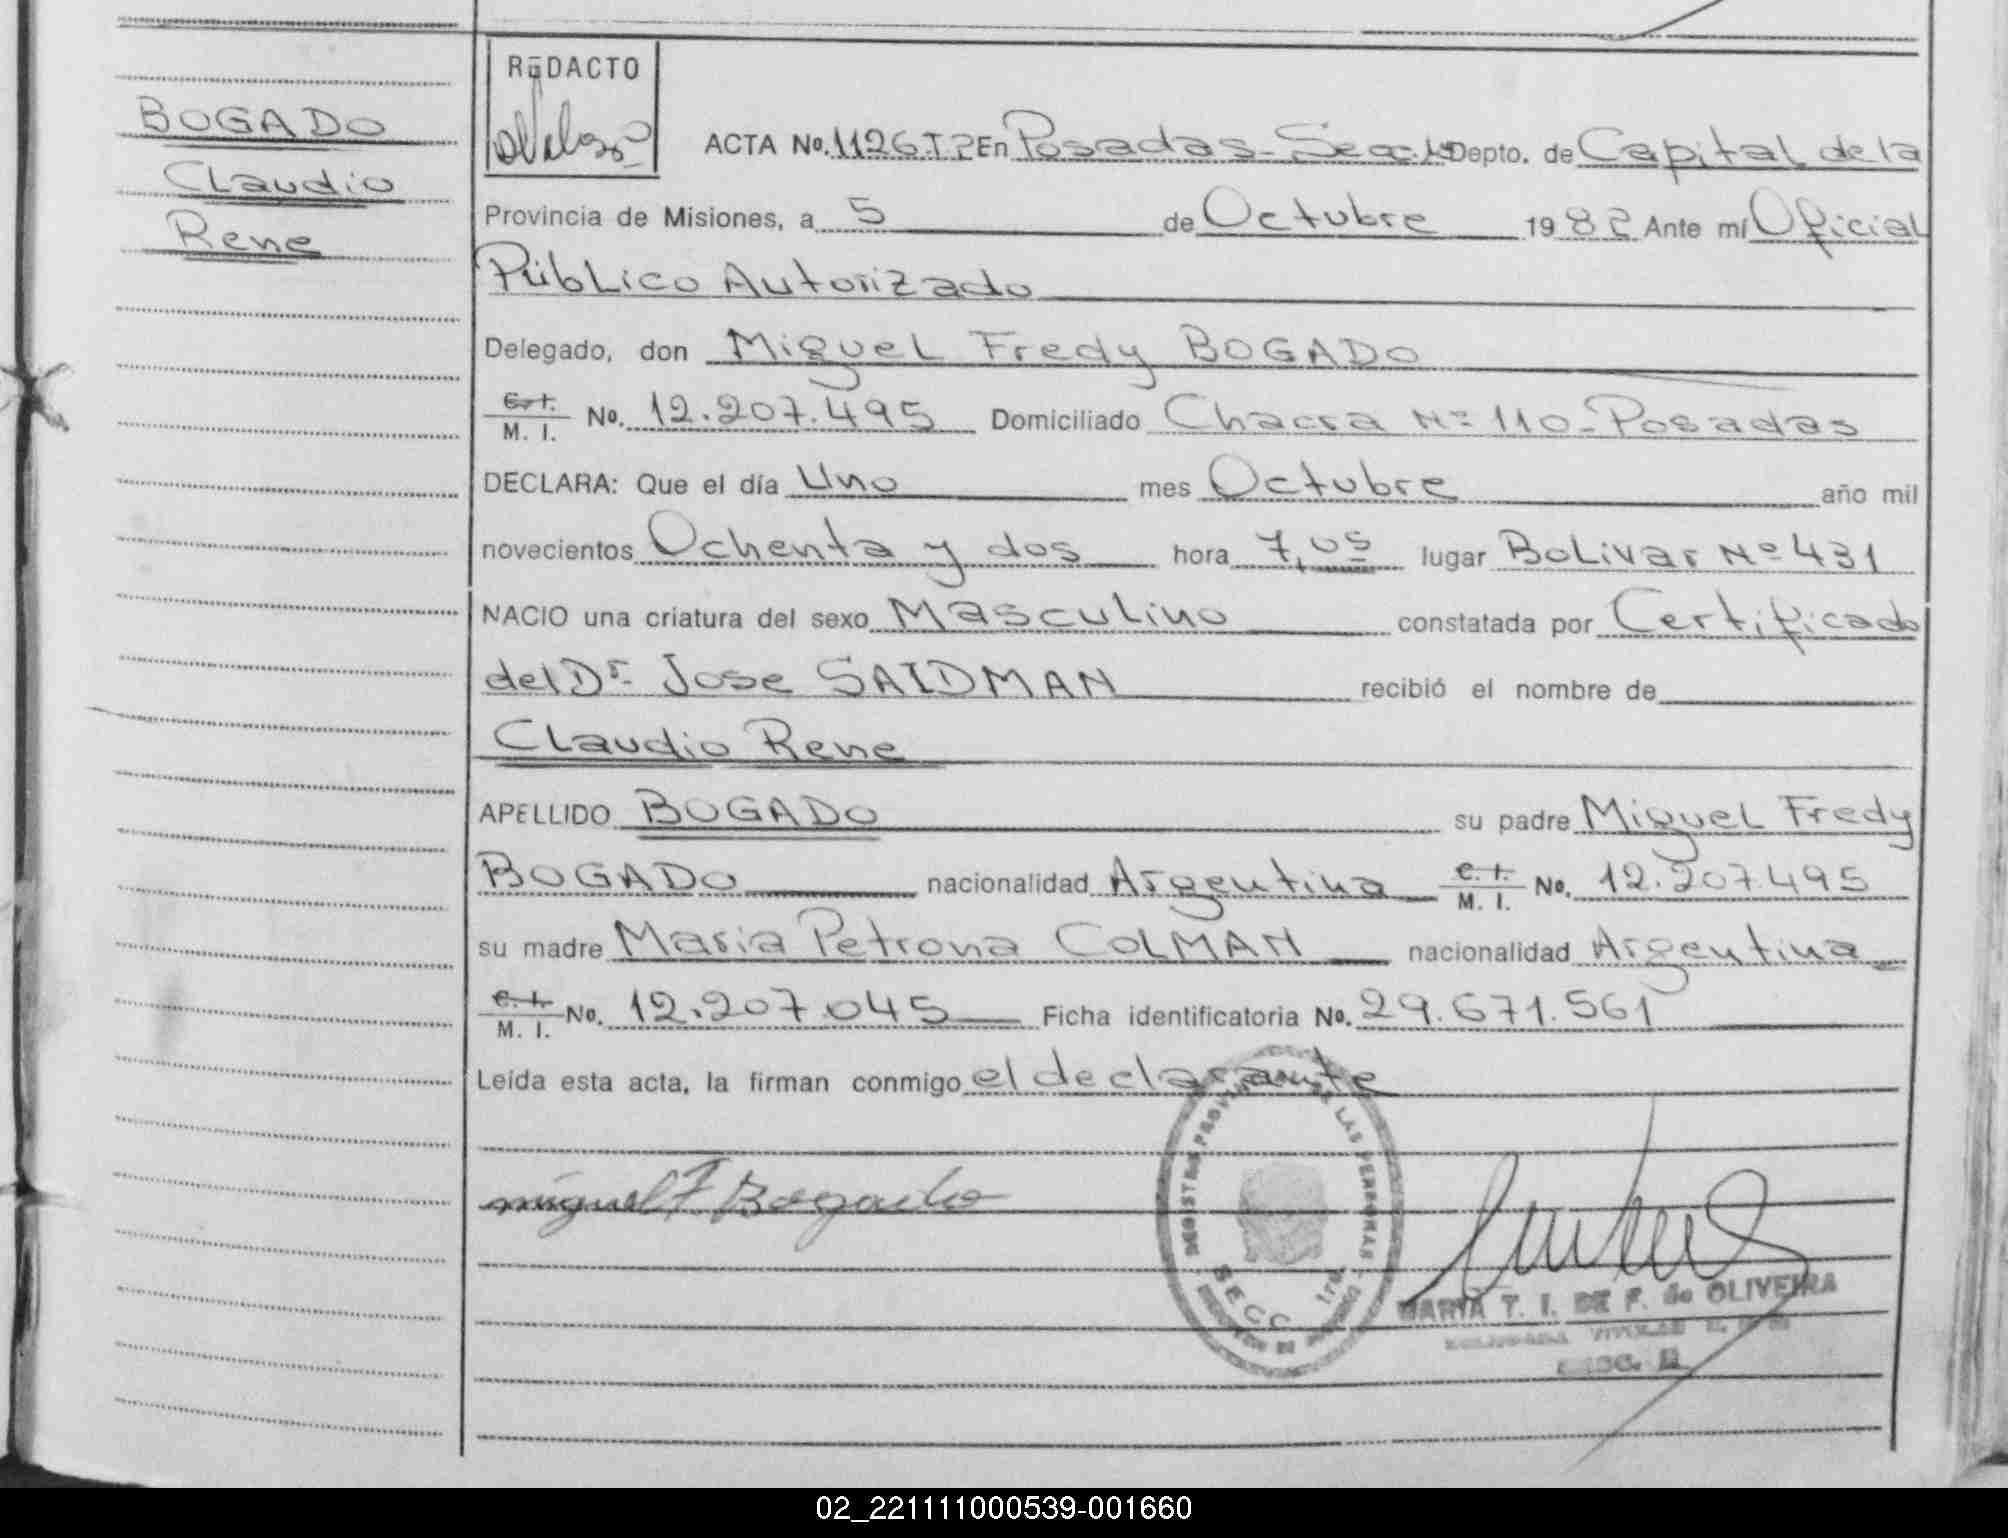 BOGADO
Claudio
Rene
REDACTO
ACTA No. 1126.T.2 En Posadas-Secc. Depto. de Capital de la
Provincia de Misiones, a 5 de Octubre 1982 Ante mí Oficial
Público Autorizado
Delegado, don Miguel Fredy BOGADO
C. I. M. I. No. 12.207.495 Domiciliado Chacra Nº 110-Posadas
DECLARA: Que el día Uno mes Octubre año mil
novecientos Ochenta y dos hora 7,05 lugar Bolivar Nº 431
NACIO una criatura del sexo Masculino constatada por Certificado
del Dr. Jose SAIDMAN recibió el nombre de
Claudio Rene
APELLIDO BOGADO su padre Miguel Fredy
BOGADO nacionalidad Argentina C. I. M. I. No. 12.207.495
su madre Maria Petrona COLMAN nacionalidad Argentina
C. I. M. I. No. 12.207.045 Ficha identificatoria No. 29.671.561
Leída esta acta, la firman conmigo el declarante
LAS PERSONAS
SECC
miguel F. Bogado
MARIA T. I. DE F. de OLIVEIRA
02_221111000539-001660